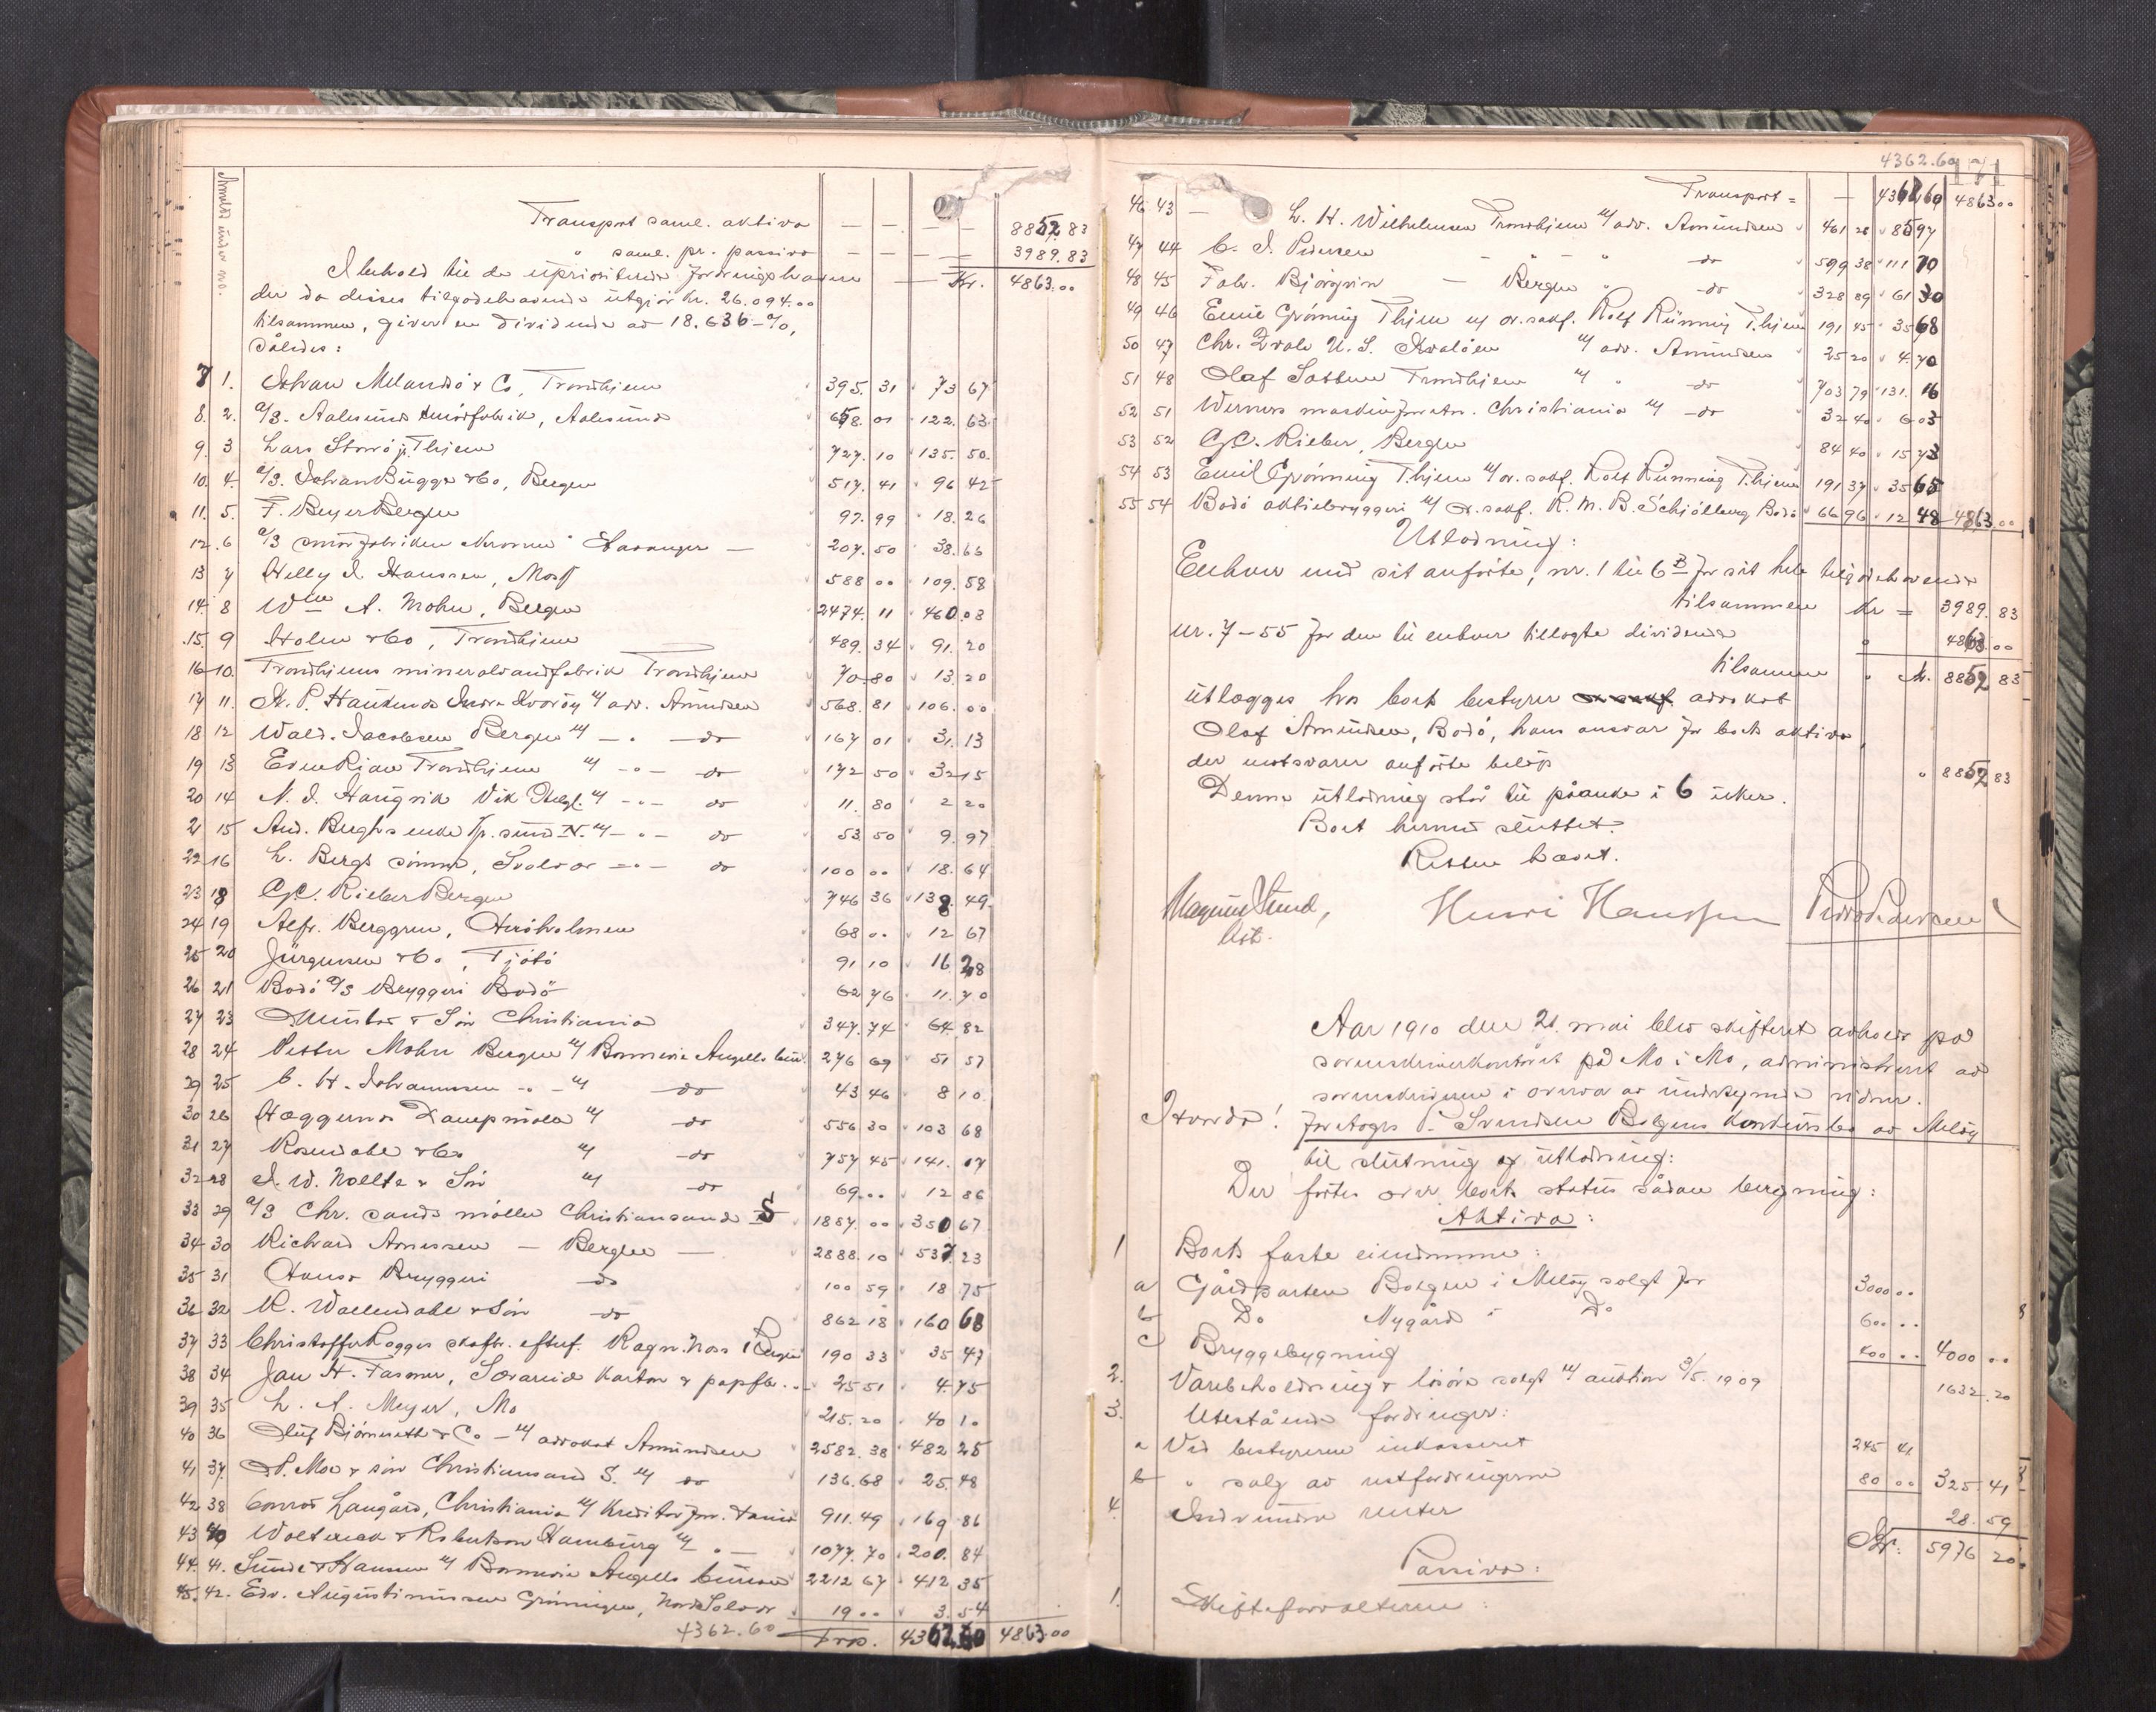 Anmeldt under no.
Transport saml. aktiva — — — — 8852 83
" saml. pr. passiva — — — — 3989.83
I henhold til de upriorterede fordringshavere — Kr. 4863.00
der da disses tilgodehavende utgjør kr. 26.094.00
tilsammen, giver en dividende av 18.636 %,
således:
7 1. Johan Melandsø & Co, Trondhjem 395. 31 73 67
8. 2. A/S. Aalesunds smørfabrik, Aalesund 658. 01 122. 63
9. 3 Lars Storø jr. Thjem 727. 10 135. 50.
10. 4. A/S. Johan Bügge & Co, Bergen 517. 41 96 42
11. 5. F. Beyer Bergen 97. 99 18. 26
12. 6 A/S smørfabriken Norvina Stavanger — 207. 50 38. 66
13 7 Helly J. Hanssen, Moss 588 00 109. 58
14 8 Wm A. Mohn, Bergen 2474. 11 460.08
15. 9 Holm & Co, Trondhjem 489. 34 91. 20
16 10. Trondhjems mineralvandfabrik Trondhjem 70.80 13. 20
17 11. H. P. Haukends Indre Kvarøy v/ adv. Amundsen 568. 81 106. 00
18 12 Wald. Jacobsen Bergen v/ — " — do 167 01 31. 13
19 13 Even Rian Trondhjem v/ — " — do 172 50 32 15
20 14 N. J. Haugvik Vik Helgl. v/ — " — do 11. 80 2 20
21 15 And. Berghs enke Kp. sund N. v/ — " — do 53. 50 9. 97
22 16 L. Bergs sønner, Svolvær — " — do 100 00 18. 64
23 18 G.C. Rieber Bergen 746 36 138. 49
24 19 Alfr. Berggren, Herøholmen 68 00 12 67
25 20 Jürgensen & Co, Tjøtø 91 10 16 28
26 21 Bodø A/S Bryggeri Bodø 62 76 11. 70
27 23 Münster & Søn Christiania 347. 74 64. 82
28 24 Petter Mohn Bergen v/ Bonnevie Angells büreau 276 69 51 57
29 25 C. H. Johannessen " — v/ do 43 46 8 10.
30 26 Hæggernes Dampmølle v/ do 556 30 103 68
31 27 Rosendahl & Co v/ do 757 45 141. 17
32 28 J. W. Noelte & Søn v/ do 69.00 12 86
33 29 A/S Chr. sands møller Christiansand S 1887. 00 350 67
34 30 Richard Amessen — Bergen — 2888. 10 537. 23
35 31 Hansa Bryggeri do 100 59 18 75
36 32 R. Wallendahl & Søn do 862 18 160 68
37 33 Christoffer Kogges skofbr. efterf. Ragn. Moss i Bergen 190 33 35 47
38 34 Jan H. Fasmer, Sævareid karton & papfbr. 25 51 4. 75
39 35 L. A. Meyer, Mo 215. 20 40 10
40 36 Oluf Bjørnseth & Co — v/ advokat Amundsen 2582. 38 482 25
41 37 P. Moe & søn Christiansand S. v/ do 136.68 25. 48
42 38 Conrad Langård, Christiania v/ Kreditorfor. Dania 911. 49 169 86
43 40 Woltereck & Robertson Hamburg v/ " — 1077. 70 200. 84
44. 41. Sunde & Hansen v/ Bonnevie Angells büreau 2212 67 412 35
45. 42. Edv. Augustinussen Grønningen, Nord Solvær 19 00 3. 54
4362.60 Trp. 4362.60 4863.00
4362.60
Transport = — 4362 60 4863 00
46 43 — L. H. Wilhelmsen Trondhjem v/ adv. Amundsen 461 28 85 97
47 44 C. J. Pedersen — " — " do 599 38 111 70
48 45 Fabr. Bjørgvin — Bergen " do 328 89 61 30
49 46 Emil Grønning Thjem v/ o.r.sakf. Rolf Rünning Thjem 191 45 35 68
50 47 Chr. Dvale N. S. Avaløen v/ adv. Amundsen 25 20 4. 70
51 48 Olaf Sættem Trondhjem v/ " do 703 79 131. 16
52 51 Werners maskinforretn. Christiania v/ do 32 40 6 03
53 52 G.C. Rieber, Bergen 84 40 15 73
54 53 Emil Grønning Thjem v/ o.r. sakf. Rolf Rünning Thjem 191 37 35 65
55 54 Bodø aktiebryggeri v/ o.r. sakf. R. M. B. Schjølberg Bodø 66 96 12 48 4863.00
Utlodning:
Enhver med sit anførte, nr. 1 til 6 B for sit hele tilgodehavende
tilsammen kr = 3989. 83
nr. 7 – 55 for den til enhver tillagte dividende " 4863.00
tilsammen " kr. 8852 83
utlægges hos boets bestyrer advokat
Olaf Amundsen, Bodø, hans ansvar for boets aktiva,
der motsvarer anførte beløp " 8852 83
Denne utlodning står til påanke i 6 uker.
Boet hermed sluttet.
Retten hævet.
Magnus Sund, Henri Hanssen Peder Pedersen
Ast.
Aar 1910 den 21. mai blev skifteret avholdt på
sorenskriverkontoret på Mo i Mo, administrert av
sorenskriveren i overvær av undertegnede vidner.
Hvorda! foretoges P. Svendsen Bolgens konkursbo av Meløy
til slutning og utlodning:
Der førtes over boets status sådan beregning:
Aktiva:
1 Boets faste eiendomme:
a Gårdparten Bolgen i Meløy solgt for 3000 00
b Do Nygård i Do 600 00
c Bryggebygning 400 00 4000 00
2. Varebeholdning & løsøre solgt v/ auktion 3/5. 1909 1632. 20
3. Utestående fordringer:
a Ved bestyreren inkasseret 245 41
b " salg av restfordringerne 80 00 325 41
4. Indvundne renter 28. 59
Kr: 5976 20
Passiva:
1. Skifteforvalteren: